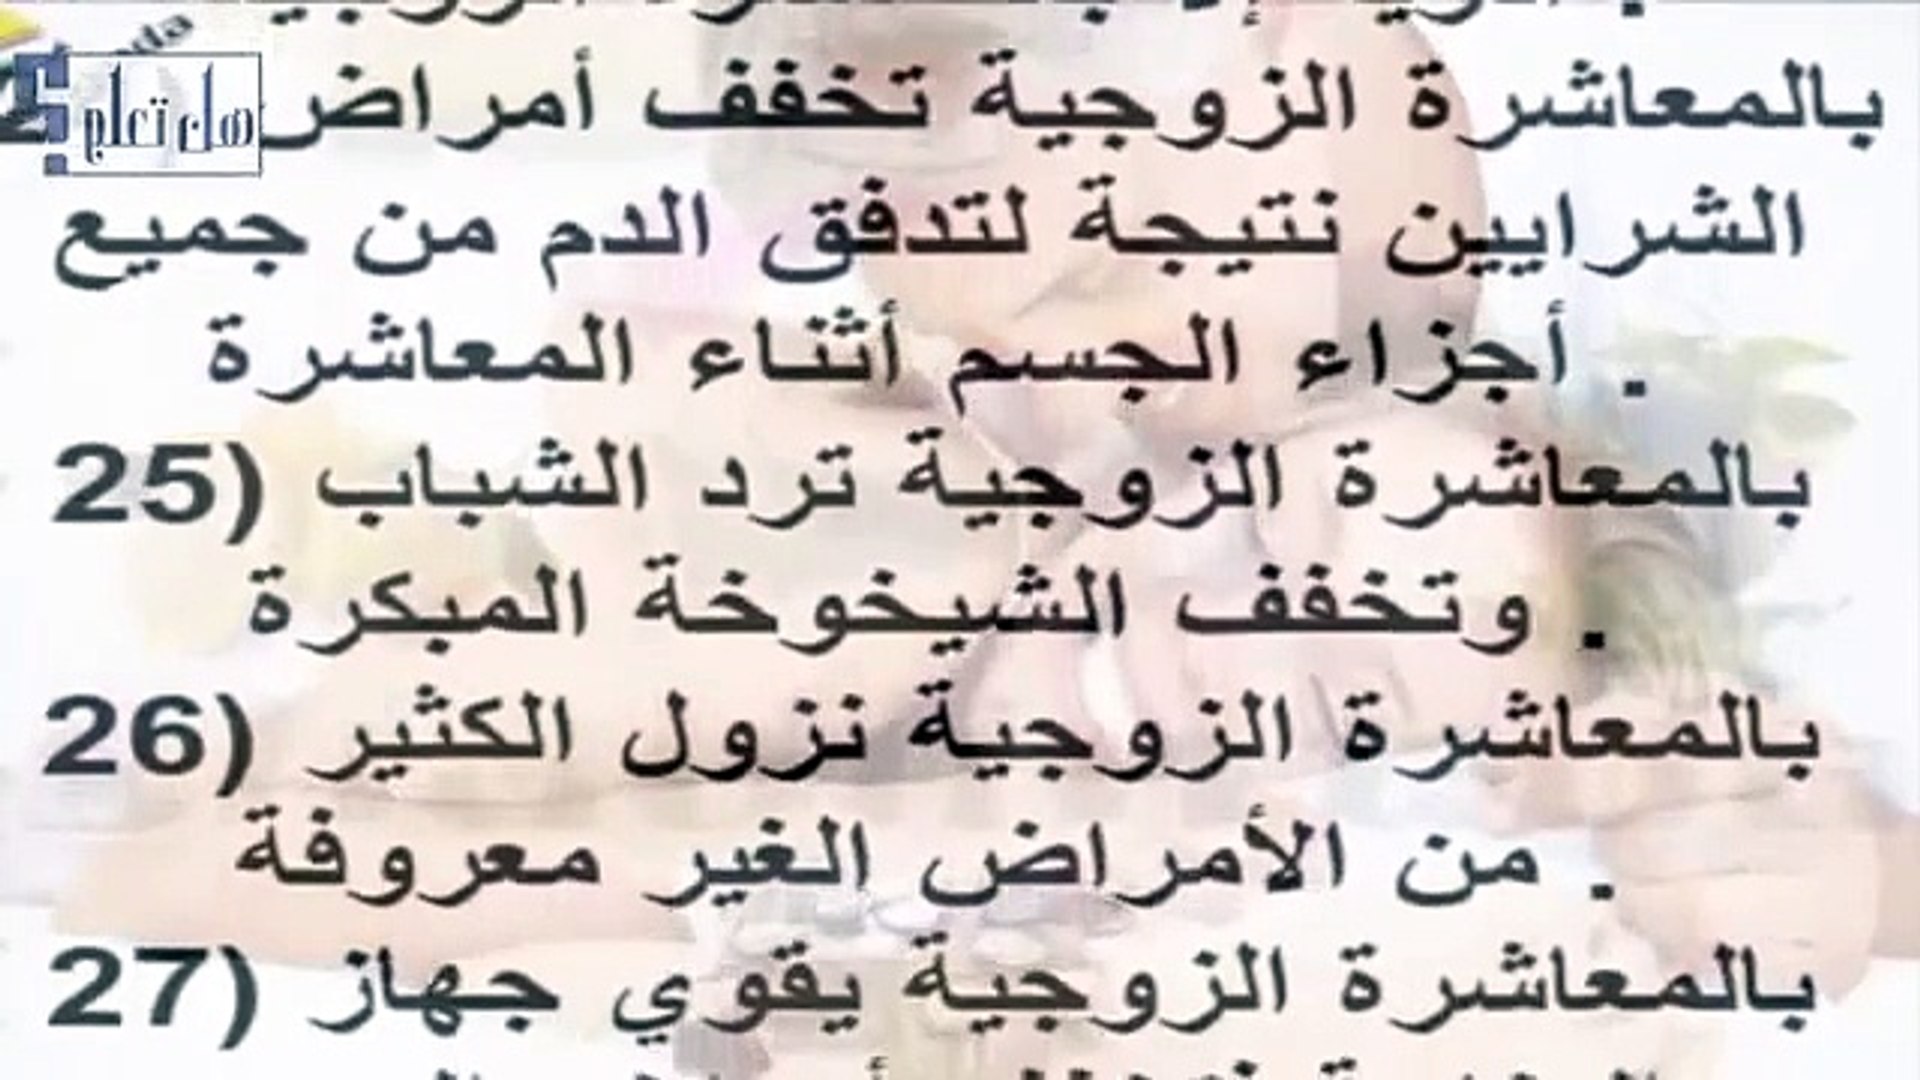 هل تعلم؟
بالمعاشرة الزوجية تخفف أمراض
الشرايين نتيجة لتدفق الدم من جميع
أجزاء الجسم أثناء المعاشرة .
25) بالمعاشرة الزوجية ترد الشباب
وتخفف الشيخوخة المبكرة .
26) بالمعاشرة الزوجية نزول الكثير
من الأمراض الغير معروفة .
27) بالمعاشرة الزوجية يقوي جهاز